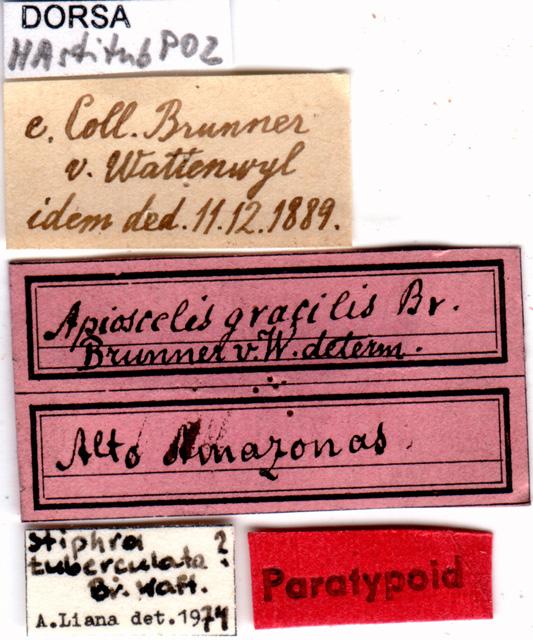 DORSA
HAstitubP02
e. Coll. Brunner
v. Wattenwyl
idem ded. 11.12.1889.
Apioscelis gracilis Br.
Brunner v. W. determ.
Alto Amazonas
Stiphra ?
tuberculata
Br. Watt.
A. Liana det. 1974
Paratypoid